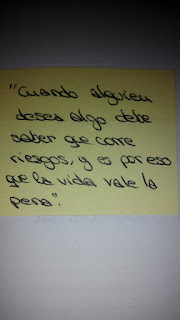 "Cuando alguien
desea algo debe
saber que corre
riesgos, y es por eso
que la vida vale la
pena".